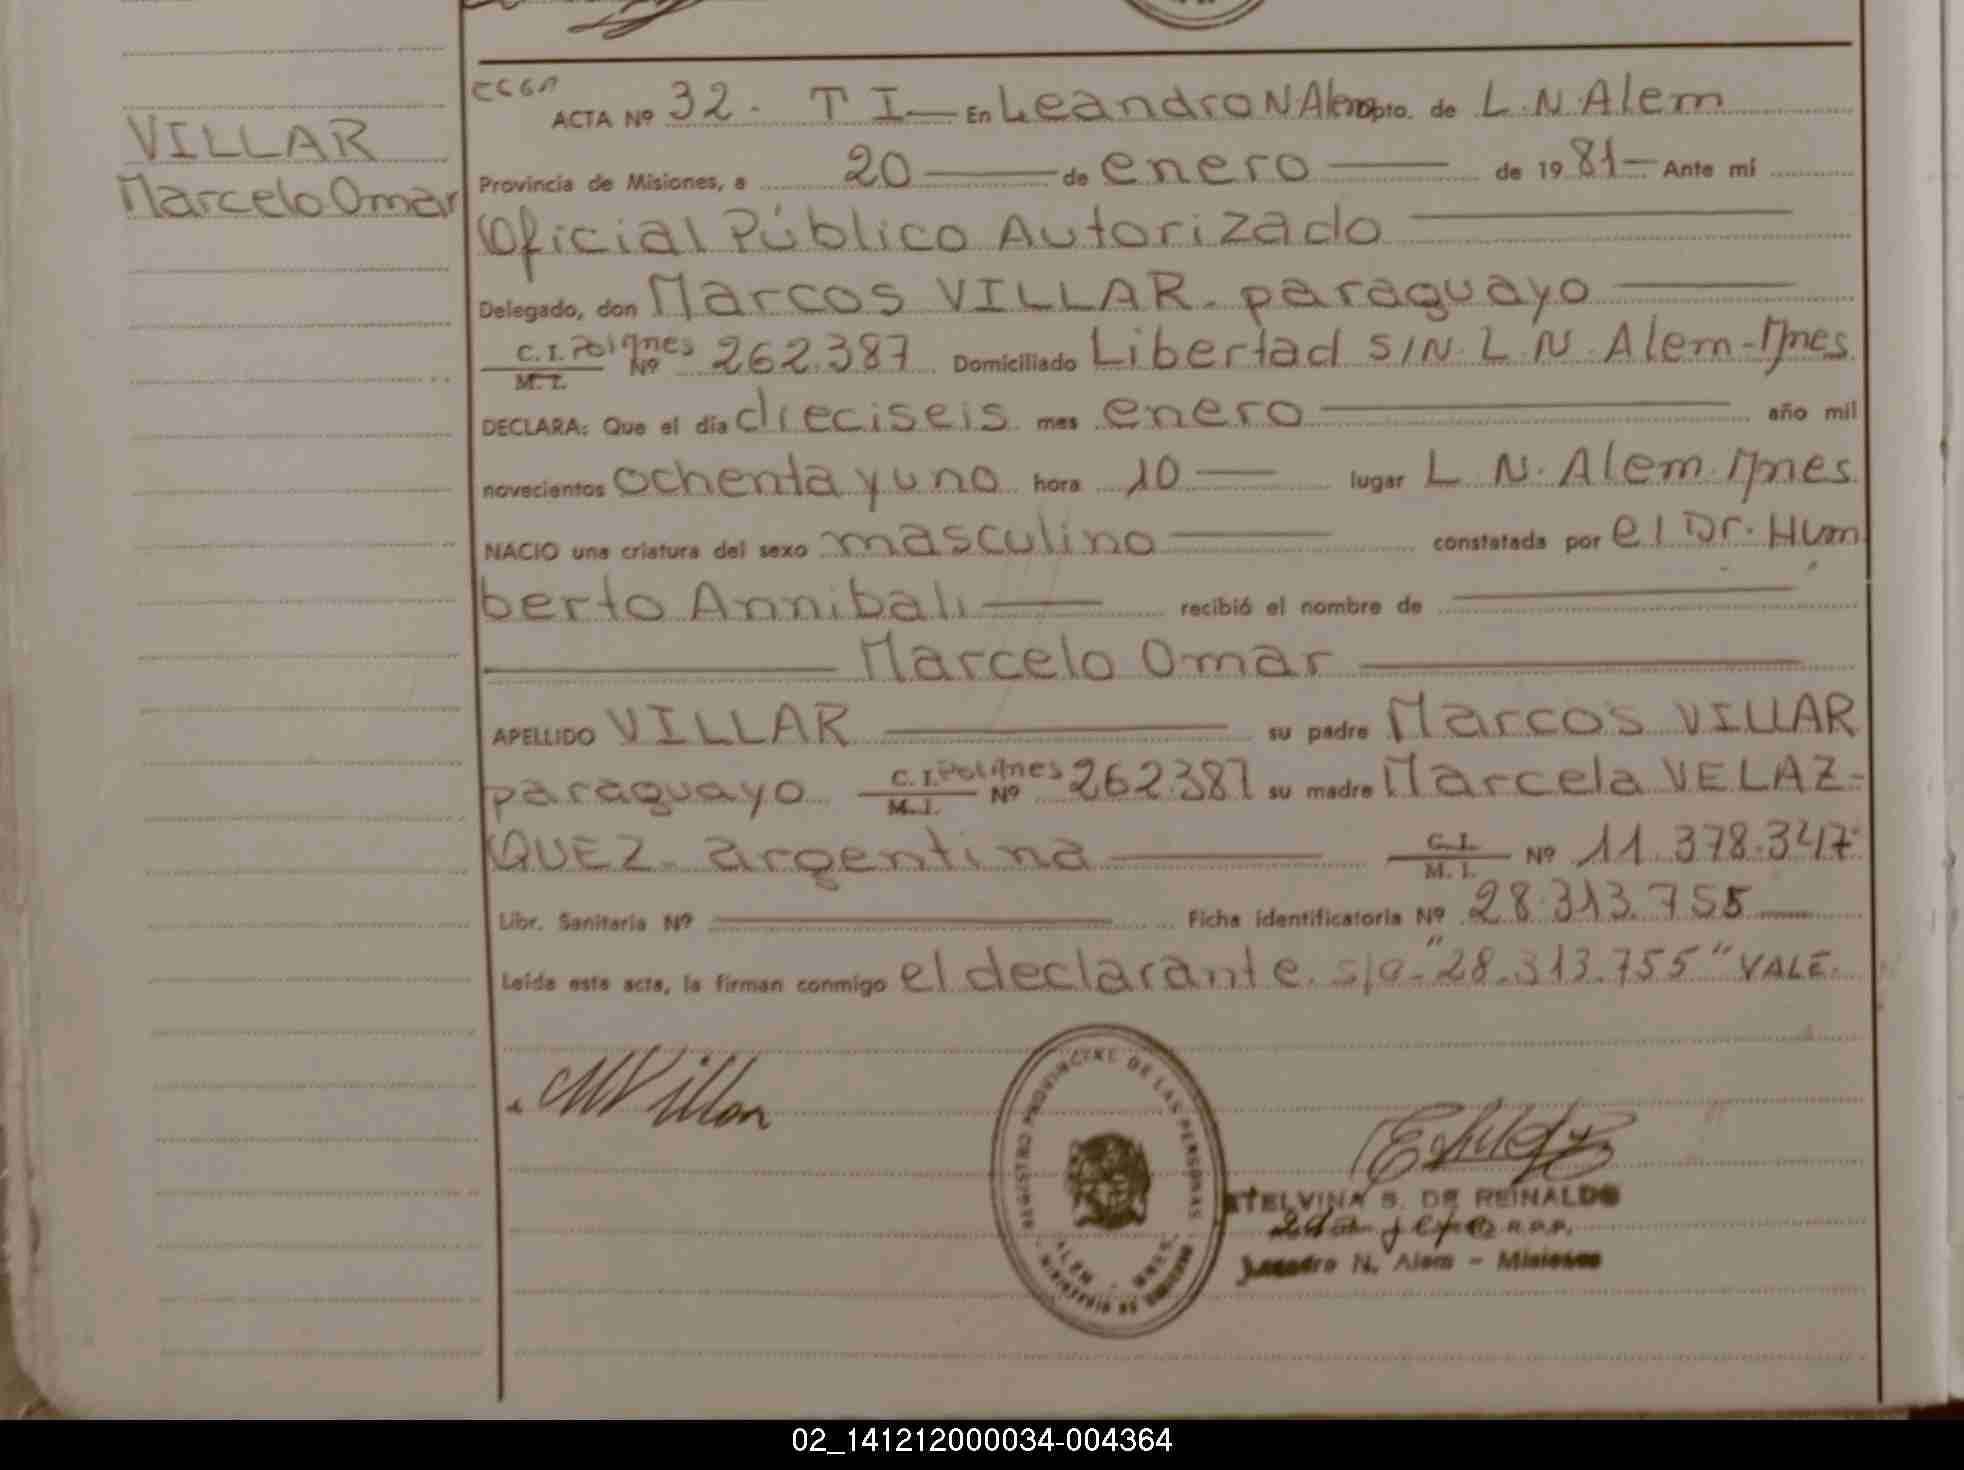 VILLAR
Marcelo Omar
ACTA Nº 32. T I — En Leandro N Alem Dpto. de L.N.Alem
Provincia de Misiones, a 20 — de enero — de 19 81 — Ante mí
Oficial Público Autorizado
Delegado, don Marcos VILLAR - paraguayo
C.I. Pol Mnes
M. I. Nº 262.387 Domiciliado Libertad S/N. L.N. Alem - Mnes
DECLARA: Que el día dieciseis mes enero — año mil
novecientos ochenta y uno hora 10 — lugar L.N. Alem. Mnes
NACIO una criatura del sexo masculino — constatada por el Dr. Hum
berto Annibali — recibió el nombre de —
— Marcelo Omar —
APELLIDO VILLAR — su padre Marcos VILLAR
paraguayo C.I. Pol Mnes
M. I. Nº 262.387 su madre Marcela VELAZ-
QUEZ - argentina — C. I.
M. I. Nº 11.378.347
Libr. Sanitaria Nº — Ficha identificatoria Nº 28.313.755
Leída esta acta, la firman conmigo el declarante. s/a - "28.313.755" VALE.
MVillar
PROVINCIAL DE LAS PERSONAS
ALEM - MNES.
MINISTERIO DE GOBIERNO
ETELVINA S. DE REINALDO
R.P.P.
Leandro N. Alem - Misiones
02_141212000034-004364